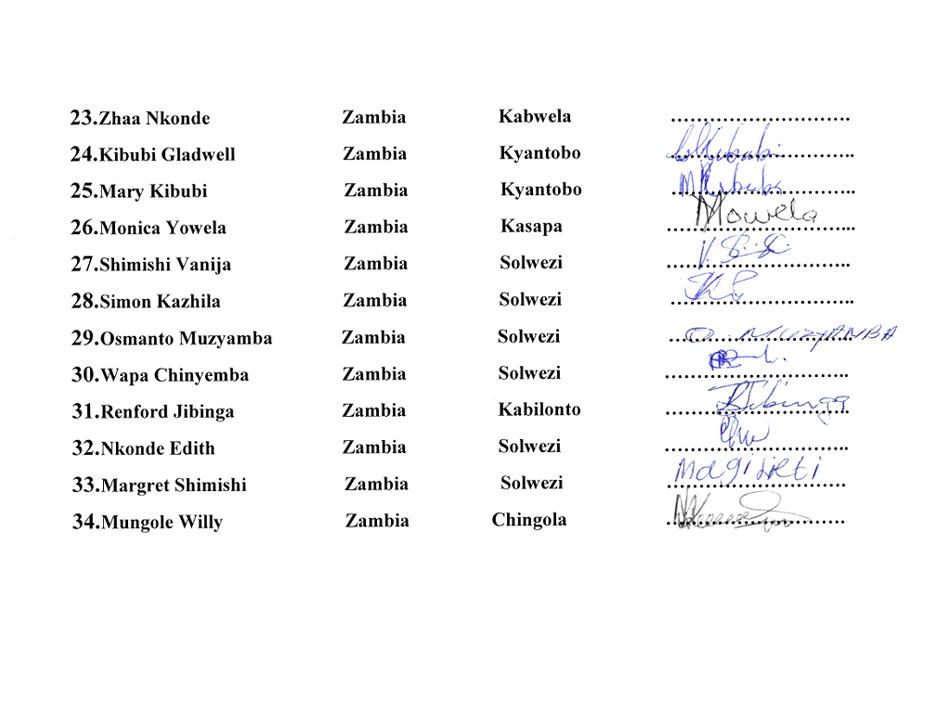 23.Zhaa Nkonde Zambia Kabwela ................................
24.Kibubi Gladwell Zambia Kyantobo Kibubi
25.Mary Kibubi Zambia Kyantobo MKibubi
26.Monica Yowela Zambia Kasapa Mowela
27.Shimishi Vanija Zambia Solwezi
28.Simon Kazhila Zambia Solwezi
29.Osmanto Muzyamba Zambia Solwezi O. MUZYAMBA
30.Wapa Chinyemba Zambia Solwezi
31.Renford Jibinga Zambia Kabilonto RJibinga
32.Nkonde Edith Zambia Solwezi
33.Margret Shimishi Zambia Solwezi Magireti
34.Mungole Willy Zambia Chingola